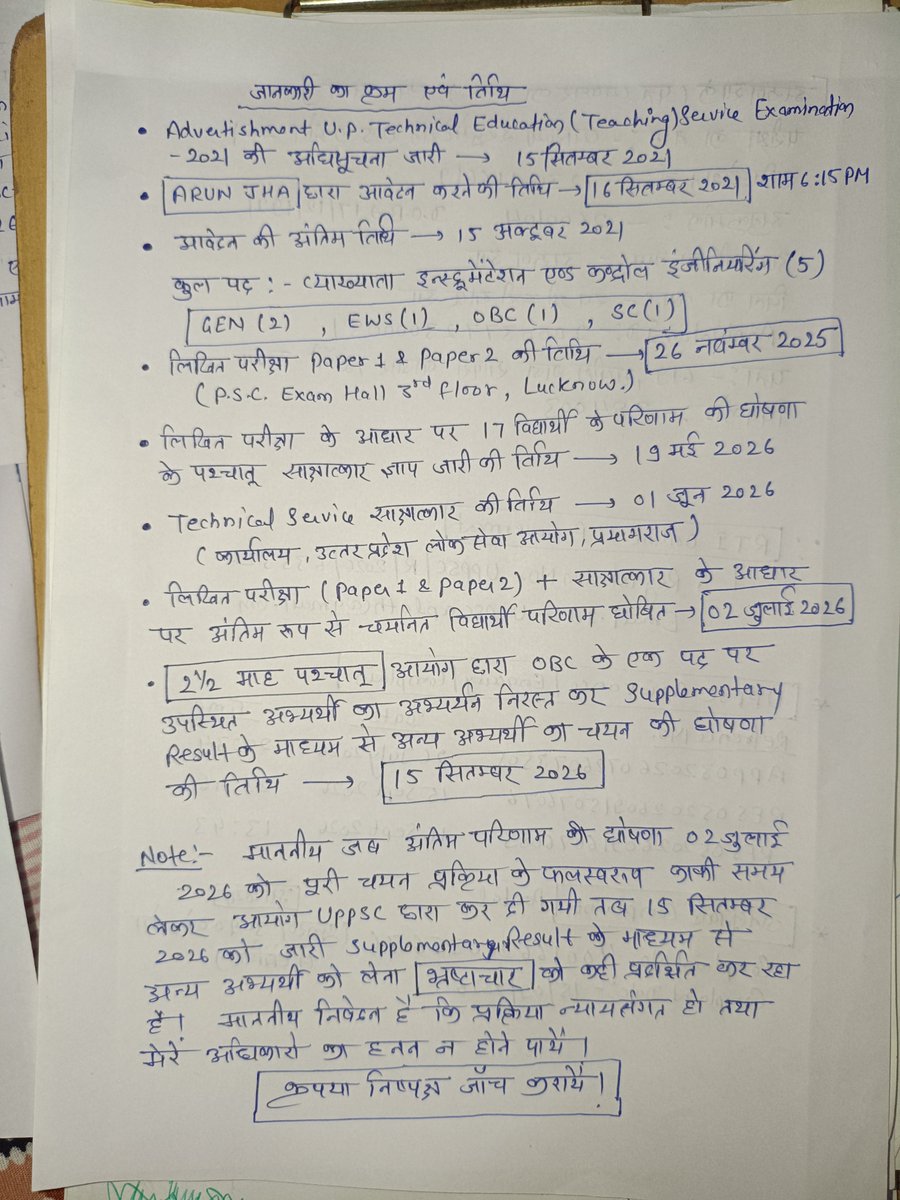 जानकारी का क्रम एवं तिथि
• Advertishment U.P. Technical Education (Teaching) Service Examination
-2021 की अधिसूचना जारी → 15 सितम्बर 2021
• ARUN JHA द्वारा आवेदन करने की तिथि → 16 सितम्बर 2021 शाम 6:15 PM
• आवेदन की अंतिम तिथि → 15 अक्टूबर 2021
कुल पद :- व्याख्याता इन्स्ट्रूमेंटेशन एण्ड कन्ट्रोल इंजीनियरिंग (5)
GEN (2) , EWS (1) , OBC (1) , SC (1)
• लिखित परीक्षा Paper 1 & Paper 2 की तिथि → 26 नवम्बर 2025
(P.S.C. Exam Hall 3rd floor, Lucknow.)
• लिखित परीक्षा के आधार पर 17 विद्यार्थी के परिणाम की घोषणा
के पश्चात् साक्षात्कार ज्ञाप जारी की तिथि → 19 मई 2026
• Technical Service साक्षात्कार की तिथि → 01 जून 2026
(कार्यालय, उत्तर प्रदेश लोक सेवा आयोग, प्रयागराज)
• लिखित परीक्षा (Paper 1 & Paper 2) + साक्षात्कार के आधार
पर अंतिम रूप से चयनित विद्यार्थी परिणाम घोषित → 02 जुलाई 2026
• 2 1/2 माह पश्चात् आयोग द्वारा OBC के एक पद पर
उपस्थित अभ्यर्थी का अभ्यर्थन निरस्त कर Supplementary
Result के माध्यम से अन्य अभ्यर्थी का चयन की घोषणा
की तिथि → 15 सितम्बर 2026
Note:- माननीय जब अंतिम परिणाम की घोषणा 02 जुलाई
2026 को पूरी चयन प्रक्रिया के फलस्वरूप काफी समय
लेकर आयोग UPPSC द्वारा कर दी गयी तब 15 सितम्बर
2026 को जारी Supplementary Result के माध्यम से
अन्य अभ्यर्थी को लेना भ्रष्टाचार को कही प्रदर्शित कर रहा
है। माननीय निवेदन है कि प्रक्रिया न्यायसंगत हो तथा
मेरें अधिकारो का हनन न होने पायें।
कृपया निष्पक्ष जाँच करायें।